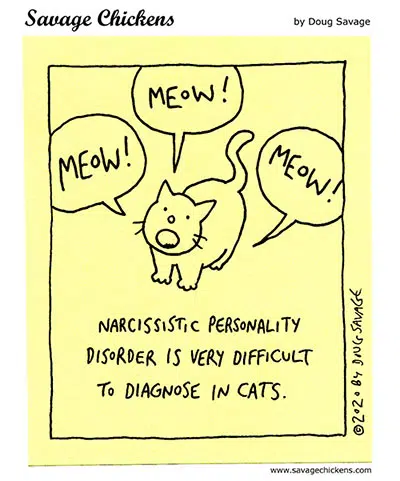 Savage Chickens
by Doug Savage
MEOW!
MEOW!
MEOW!
NARCISSISTIC PERSONALITY
DISORDER IS VERY DIFFICULT
TO DIAGNOSE IN CATS.
©2020 BY DOUG SAVAGE
www.savagechickens.com